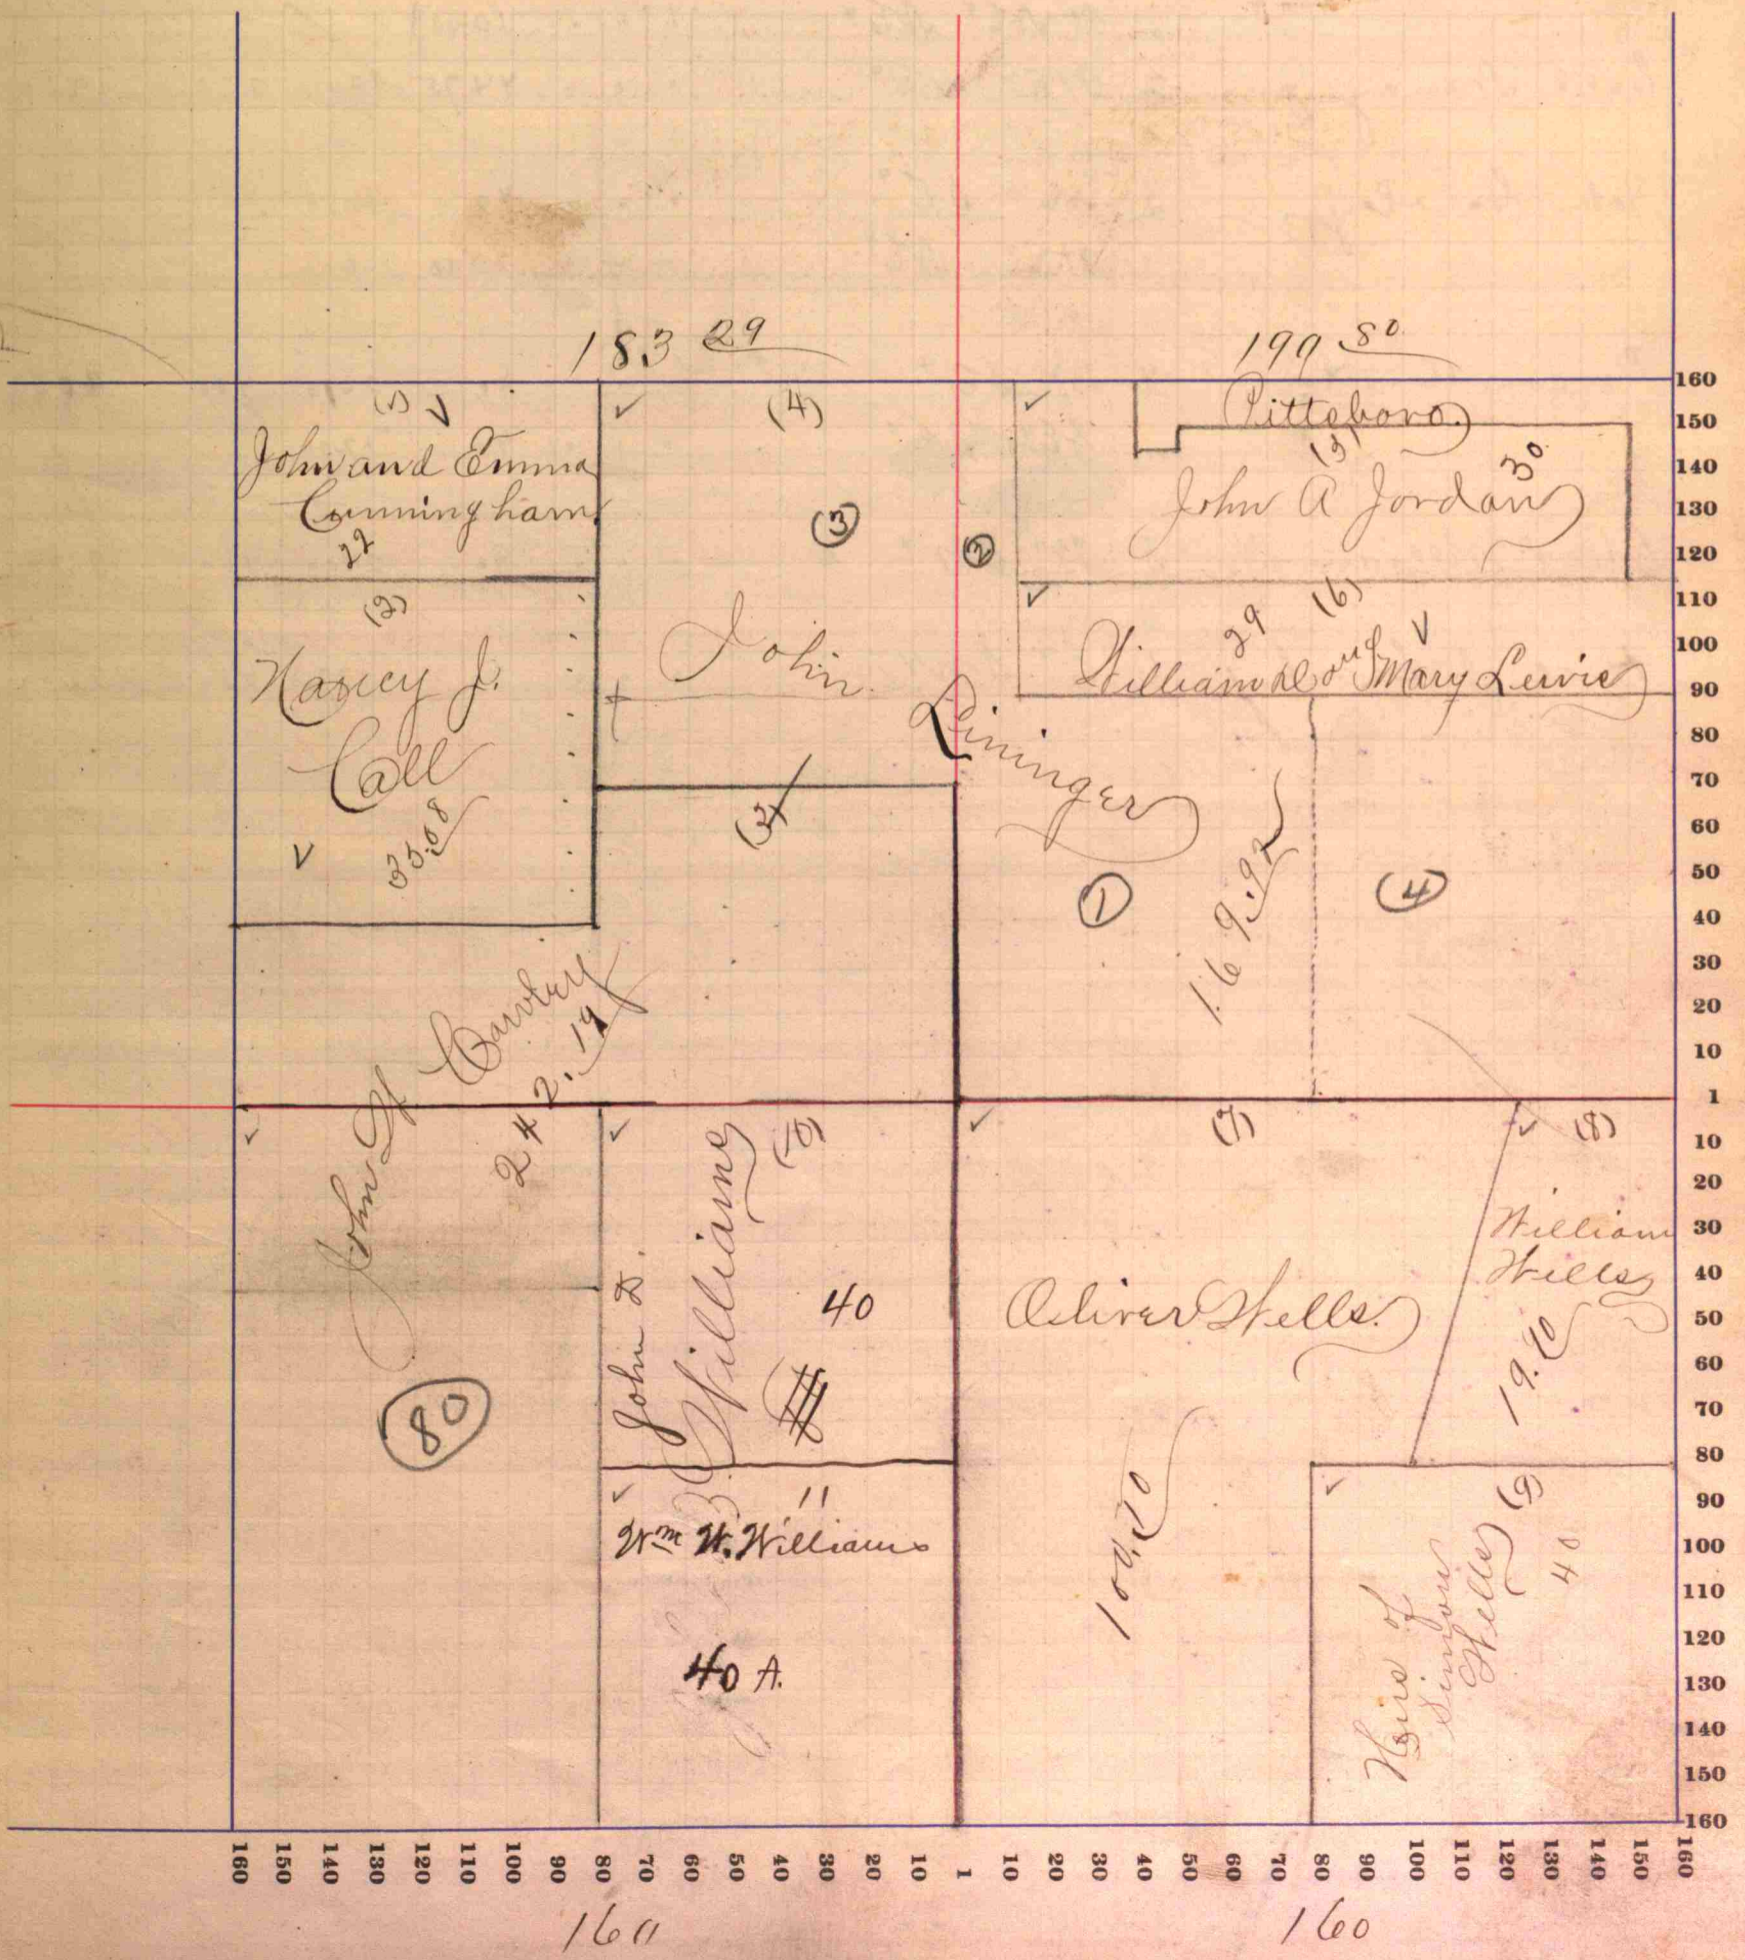 183 29
199 80
(1)
John and Emma
Cunningham
22
(4)
(3)
John
Lininger
(2)
Pittsboro
(5)
30
John A Jordan
(6)
29
William H and Mary Lewis
(2)
Nancy J.
Call
35.08
(3)
169.92
(1)
(4)
John H Cawley
242.19
80
(10)
John D.
Williams
40
11
Wm W. Williams
40 A.
(7)
Oliver Wells.
100.10
(8)
William
Wells
19.10
(9)
Heirs of
Simpson
Wells
40
160
150
140
130
120
110
100
90
80
70
60
50
40
30
20
10
1
10
20
30
40
50
60
70
80
90
100
110
120
130
140
150
160
160 150 140 130 120 110 100 90 80 70 60 50 40 30 20 10 1 10 20 30 40 50 60 70 80 90 100 110 120 130 140 150 160
160
160